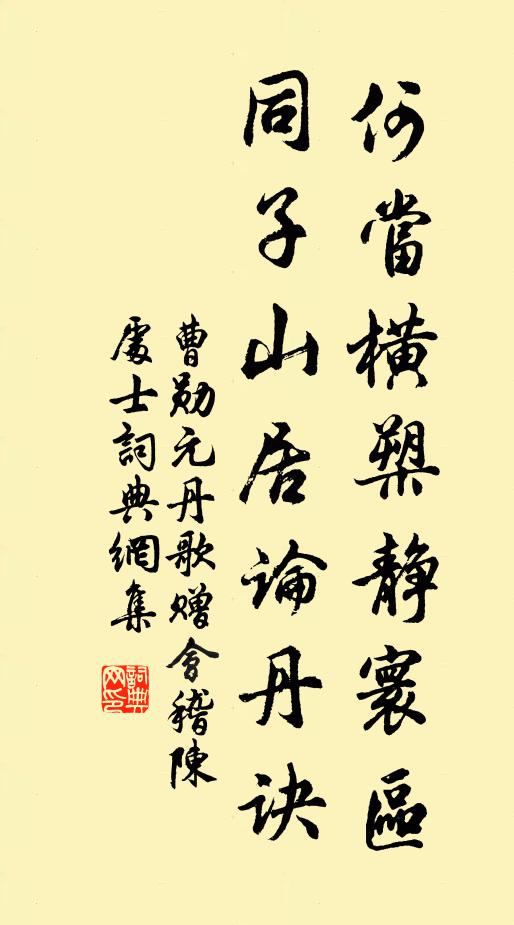 何當橫槊靜寰區
同子山居論丹诀
曹勛元丹歌赠會稽陳
處士詞典網集
詞典網印